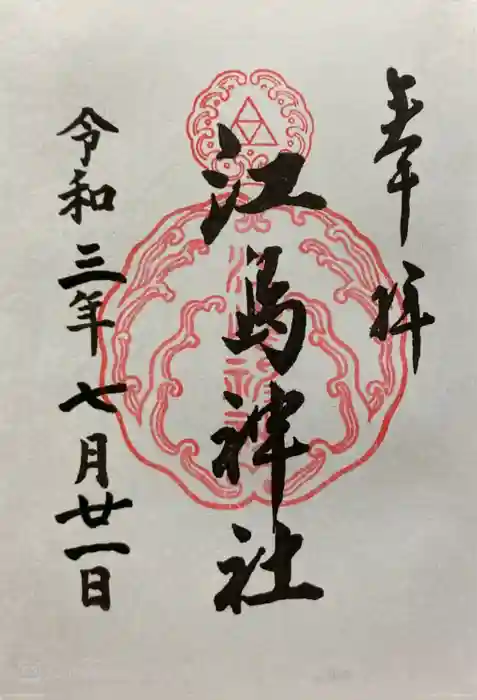 奉拝
江島神社
令和三年七月廿一日